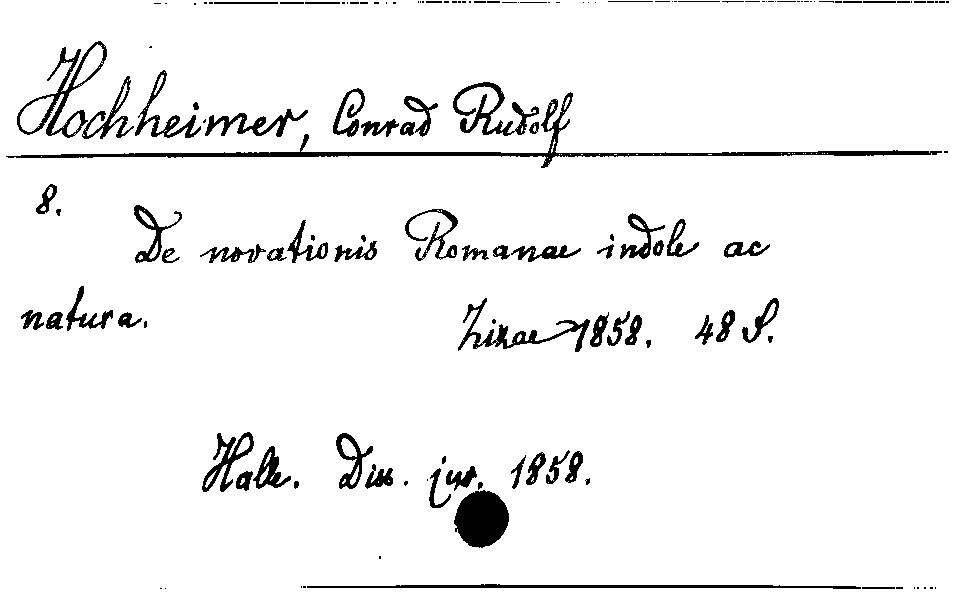 Hochheimer, Conrad Rudolf
8.
De novationis Romanae indole ac
natura. Zizae 1858. 48 S.
Halle. Diss. jur. 1858.